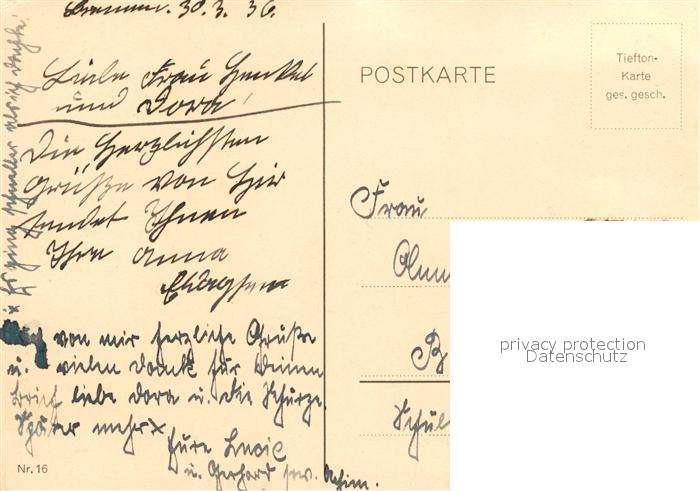 Bremen. 30.3.36.
Liebe Frau Henkel
und Dora!
Die herzlichsten
Grüße von hier
sendet Ihnen
Ihre Anna
von mir herzliche Grüße
u. vielen Dank für Deinen
Brief liebe Dora u. die Schürze
Später mehr x
Eure Lucie
u. Gerhard
Nr. 16
POSTKARTE
Tiefton-
Karte
ges. gesch.
Frau
B
Schul
privacy protection
Datenschutz